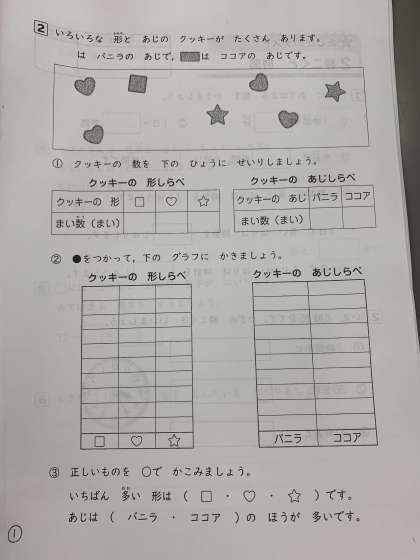 2 いろいろな 形と あじの クッキーが たくさん あります。
は バニラの あじで, は ココアの あじです。
① クッキーの 数を 下の ひょうに せいりしましょう。
クッキーの 形しらべ
クッキーの 形 □ ♡ ☆
まい数(まい)
クッキーの あじしらべ
クッキーの あじ バニラ ココア
まい数(まい)
② ●をつかって, 下の グラフに かきましょう。
クッキーの 形しらべ
□ ♡ ☆
クッキーの あじしらべ
バニラ ココア
③ 正しいものを ○で かこみましょう。
いちばん 多い 形は ( □ ・ ♡ ・ ☆ )です。
あじは ( バニラ ・ ココア )の ほうが 多いです。
1